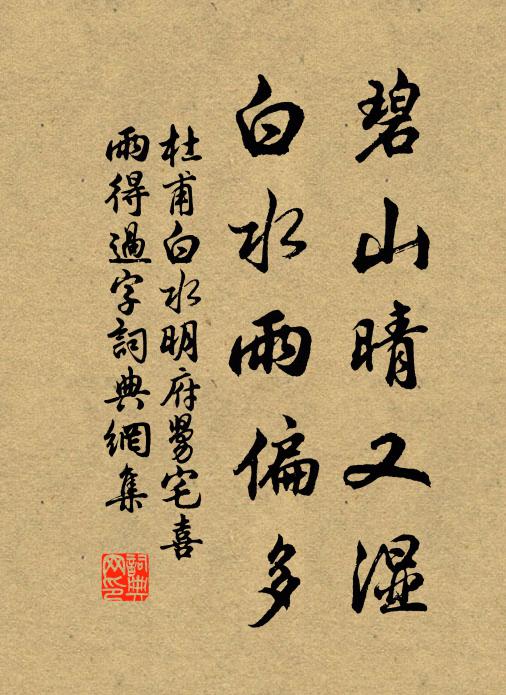 碧山晴又濕
白水雨偏多
杜甫白水明府舅宅喜
雨得過字詞典網集
詞典
网印